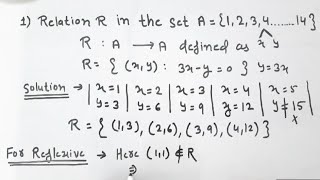 1) Relation R in the set A = {1, 2, 3, 4........14}
x y
R : A → A defined as
R = { (x, y) : 3x-y = 0 } y = 3x
Solution → | x=1 | x=2 | x=3 | x=4 | x=5 |
| y=3 | y=6 | y=9 | y=12 | y≠15
x
R = { (1,3), (2,6), (3,9), (4,12) }
For Reflexive → Here (1,1) ∉ R
⇒